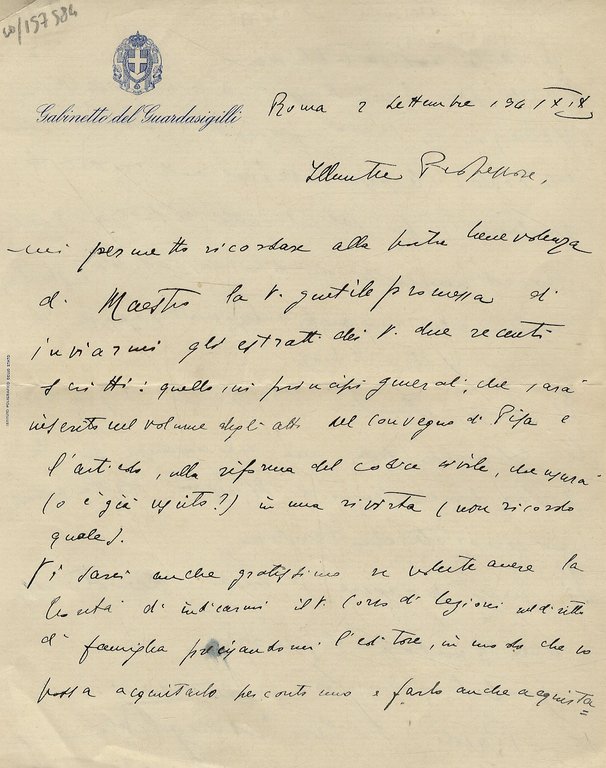 10/157584
Gabinetto del Guardasigilli
Roma 2 Settembre 1941 XIX
Illustre Professore,
mi permetto ricordare alla vostra benevolenza
di Maestro la V. gentile promessa di
inviarmi gli estratti dei V. due recenti
scritti: quello sui principi generali, che sarà
inserito nel volume degli atti del convegno di Pisa e
l'articolo, sulla riforma del codice civile, che uscirà
(o è già uscito?) in una rivista (non ricordo
quale).
Vi sarei anche gratissimo se voleste avere la
bontà di indicarmi il V. corso di lezioni sul diritto
di famiglia precisandomi l'editore, in modo che io
possa acquistarlo per conto mio e farlo anche acquista=
ISTITUTO POLIGRAFICO DELLO STATO